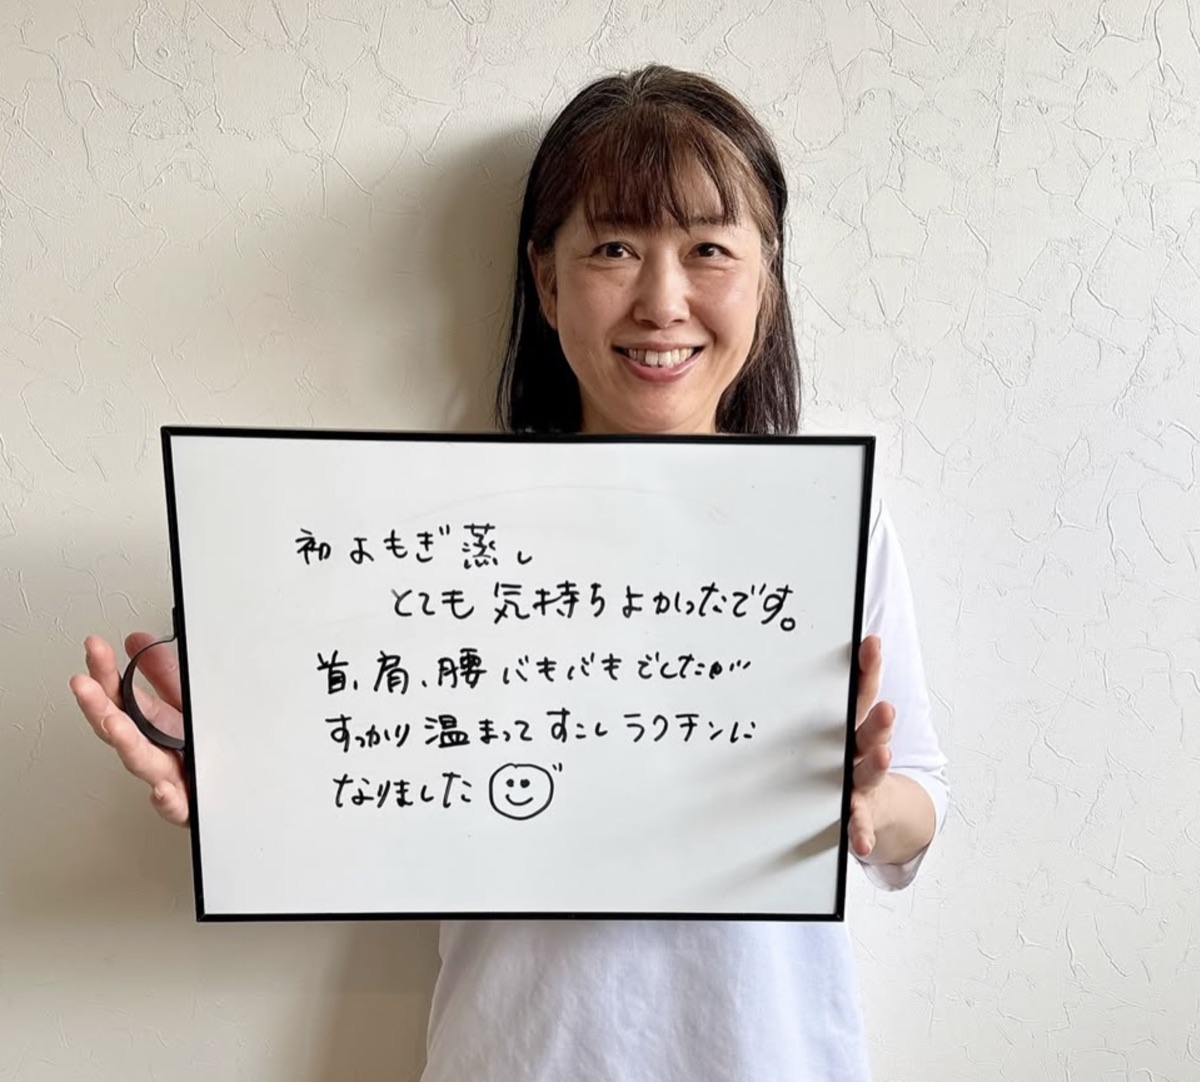 初よもぎ蒸し
とても気持ちよかったです。
首、肩、腰バキバキでしたが
すっかり温まってすこしラクチンに
なりました